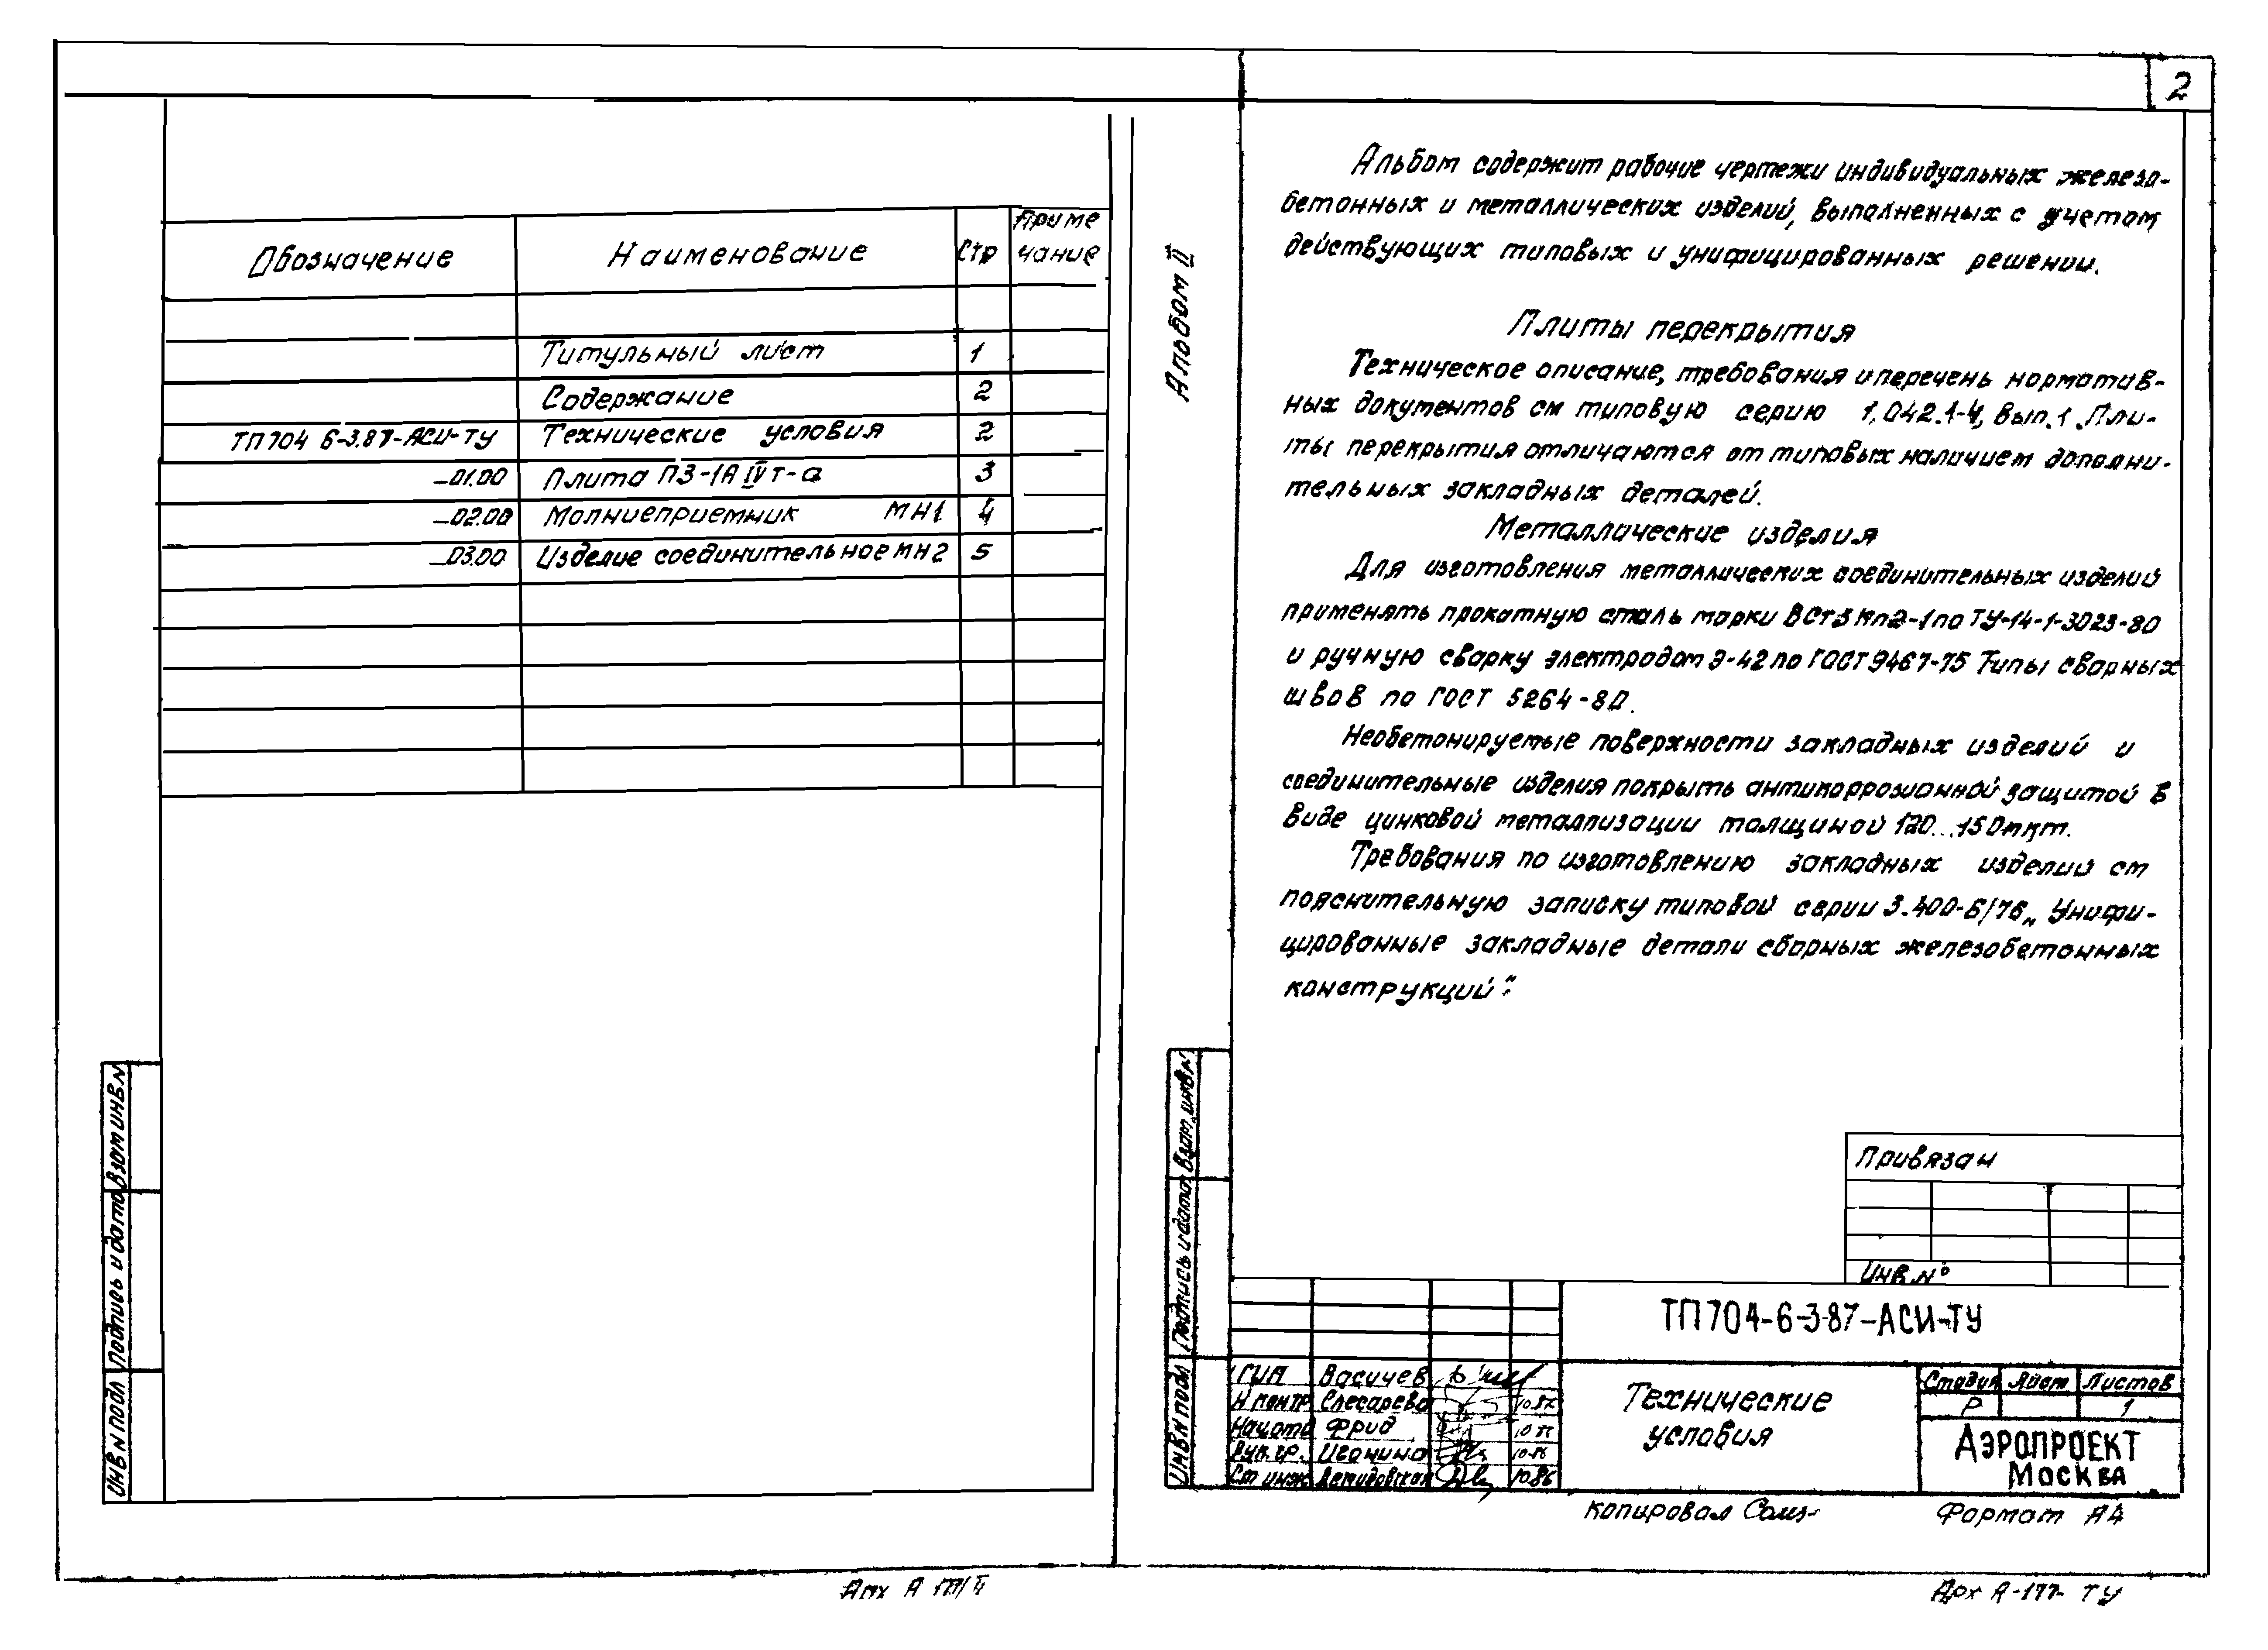 2
Обозначение Наименование Стр Приме
чание
Титульный лист 1
Содержание 2
ТП704 6-3.87-АСИ-ТУ Технические условия 2
-01.00 Плита П3-1А IVт-а 3
-02.00 Молниеприемник МН1 4
-03.00 Изделие соединительное МН2 5
Взам инв N
Подпись и дата
Инв N подл
Альбом II
Альбом содержит рабочие чертежи индивидуальных железо-
бетонных и металлических изделий, выполненных с учетом
действующих типовых и унифицированных решении.
Плиты перекрытия
Техническое описание, требования и перечень норматив-
ных документов см типовую серию 1.042.1-4, вып.1. Пли-
ты перекрытия отличаются от типовых наличием дополни-
тельных закладных деталей.
Металлические изделия
Для изготовления металлических соединительных изделий
применять прокатную сталь марки ВСт3кп2-1 по ТУ-14-1-3023-80
и ручную сварку электродом Э-42 по ГОСТ 9467-75 Типы сварных
швов по ГОСТ 5264-80.
Необетонируемые поверхности закладных изделий и
соединительные изделия покрыть антикоррозионной защитой в
виде цинковой металлизации толщиной 120...150мкм.
Требования по изготовлению закладных изделий см
пояснительную записку типовой серии 3.400-6/76 „Унифи-
цированные закладные детали сборных железобетонных
конструкций".
Взам. инв N
Подпись и дата
Инв N подл
Привязан
Инв. №
ТП704-6-3-87-АСИ-ТУ
ГИП Васичев
Н контр Слесарева 10.86
Нач отд Фрид 10.86
Рук.гр. Иганина 10-86
Ст инж Демидовская 10.86
Технические
условия
Стадия Лист Листов
Р 1
АЭРОПРОЕКТ
МОСКВА
Копировал
Формат А4
Арх А-177- ТУ